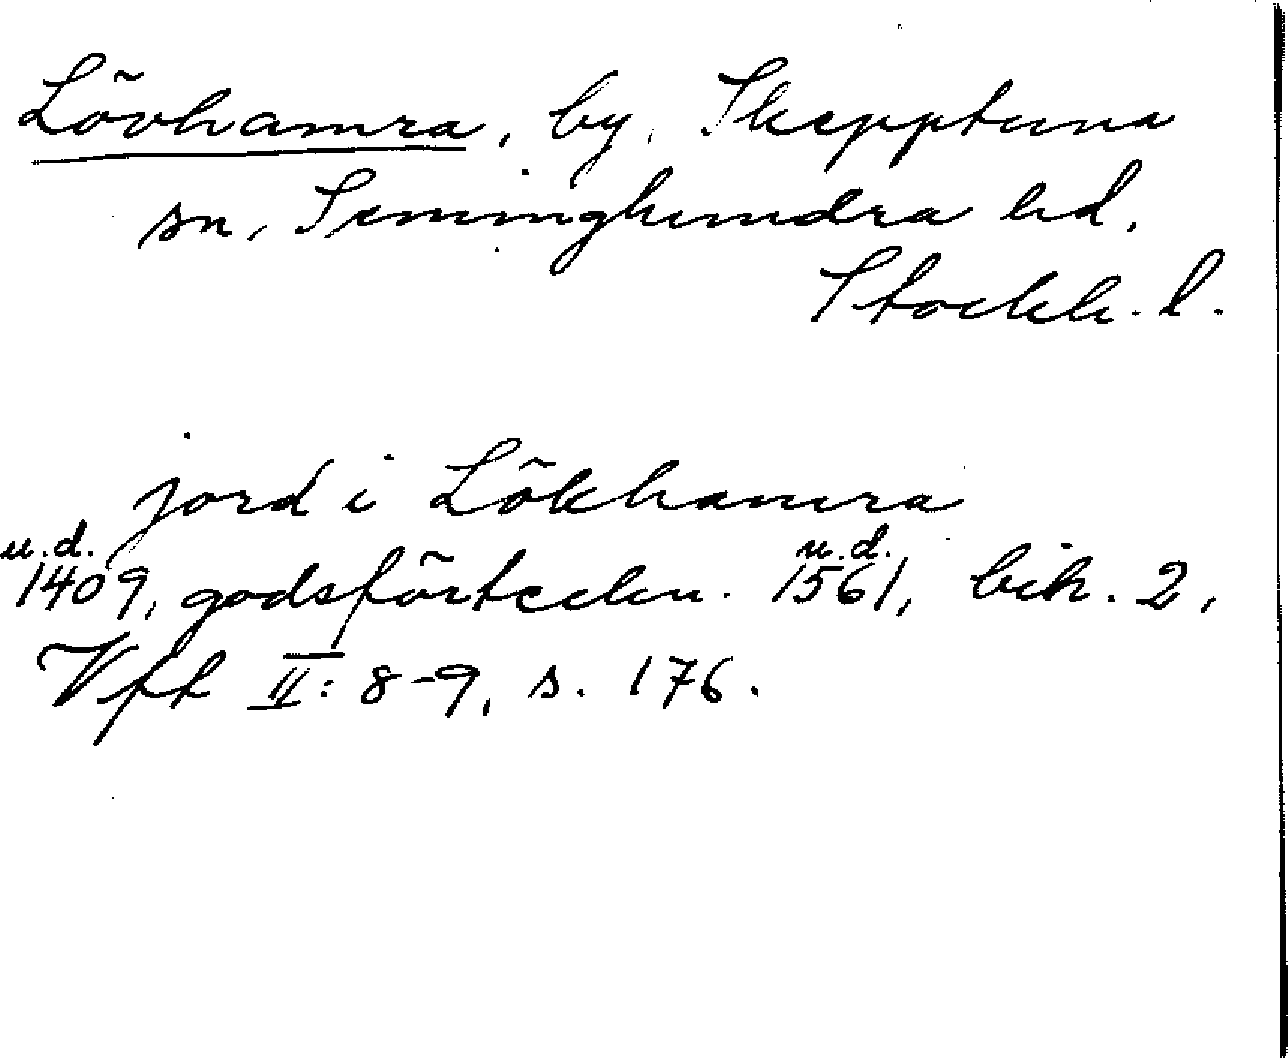 Lövhamra, by, Skepptuna
sn, Seminghundra hd,
Stockh. l.
jord i Lökhamra
u.d. u.d.
1409, godsförteckn. 1561, bih. 2,
Vft II: 8-9, s. 176.